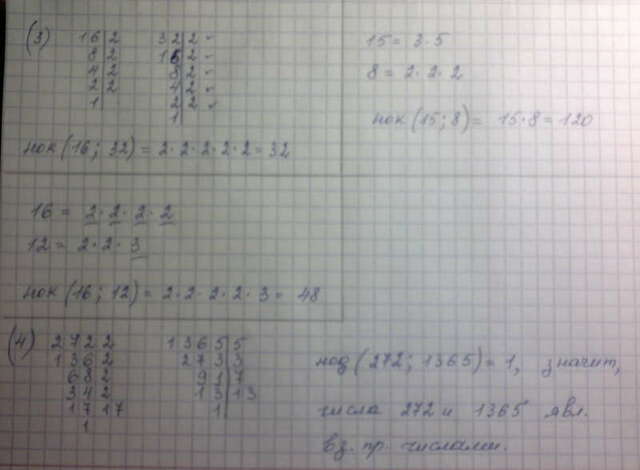 (3)
16 | 2
8 | 2
4 | 2
2 | 2
1
32 | 2
16 | 2
8 | 2
4 | 2
2 | 2
1
нок (16; 32) = 2·2·2·2·2 = 32
15 = 3·5
8 = 2·2·2
нок (15; 8) = 15·8 = 120
16 = 2·2·2·2
12 = 2·2·3
нок (16; 12) = 2·2·2·2·3 = 48
(4)
272 | 2
136 | 2
68 | 2
34 | 2
17 | 17
1
1365 | 5
273 | 3
91 | 7
13 | 13
1
нод (272; 1365) = 1, значит,
числа 272 и 1365 явл.
вз. пр. числами.